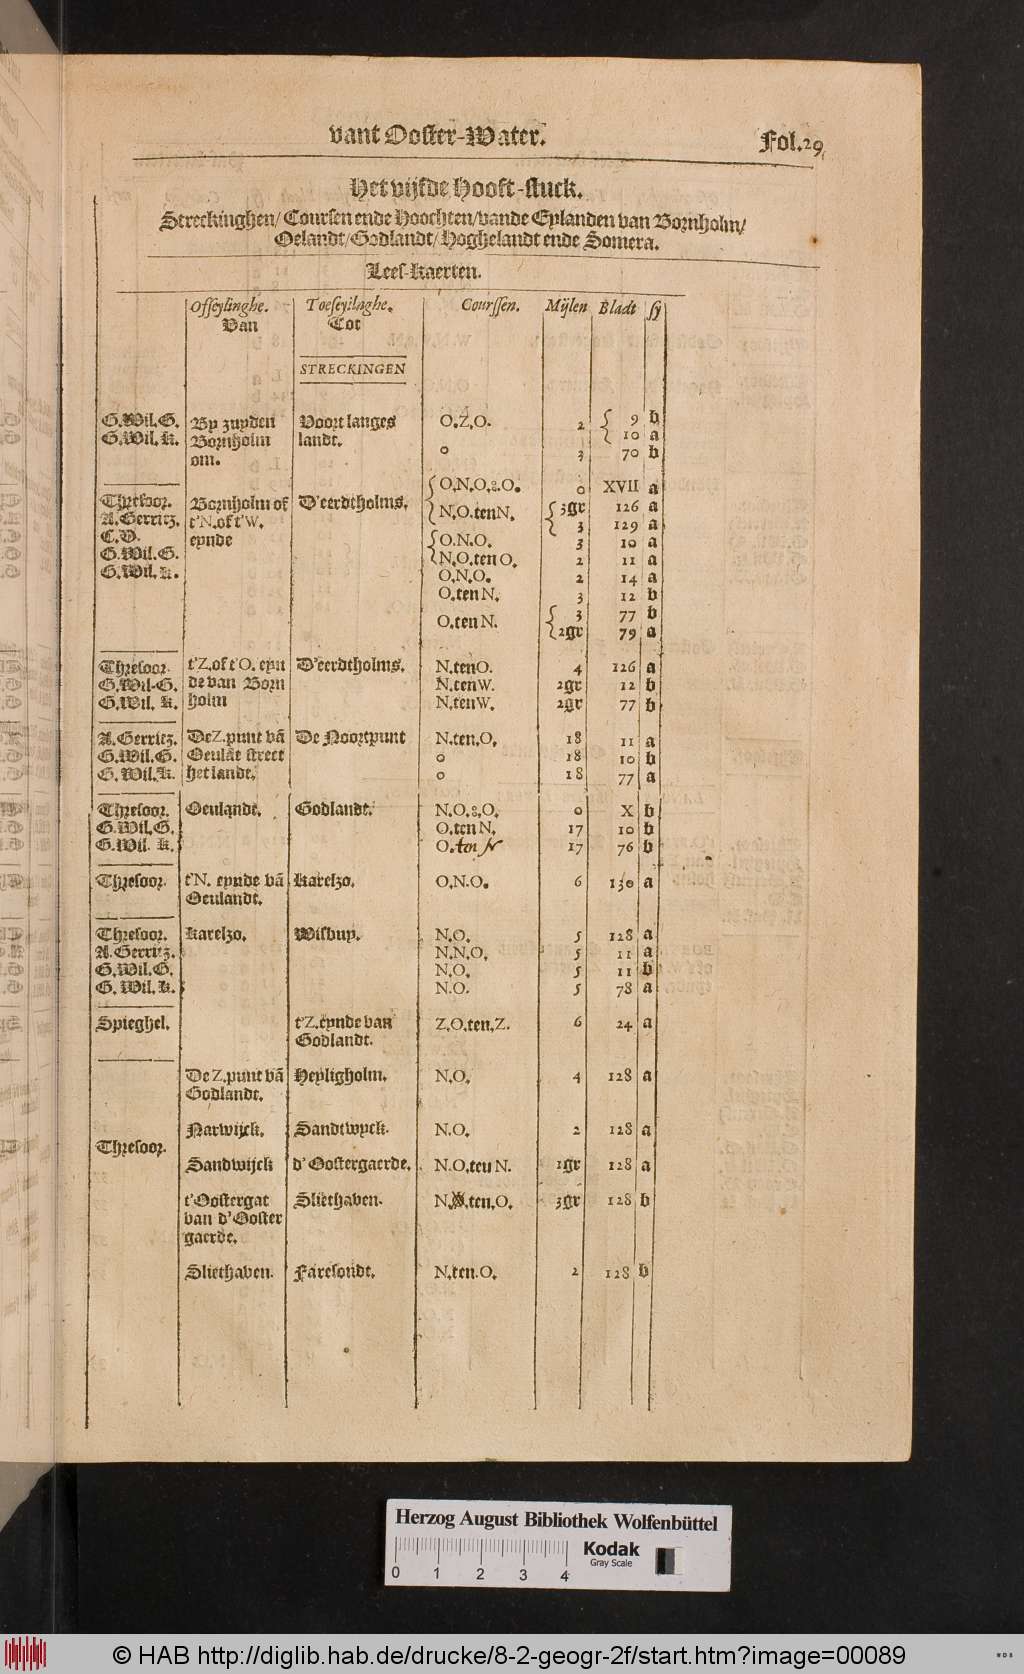 vant Ooster-Water. Fol.29.
Het vijfde Hooft-stuck.
Streckinghen/ Coursen ende Hoochten/ vande Eylanden van Bornholm/
Oelandt/ Godlandt/ Hoghelandt ende Somera.
Lees-kaerten.
Offeylinghe. Toeseylinghe. Courssen. Mijlen Bladt sy
Van Tot
STRECKINGEN
G.Wil.G. By zuyden Voort langes O.Z.O. 2 { 9 b
G.Wil.K. Bornholm landt. { 10 a
om. o 3 70 b
{ O.N.O.&.O. o XVII a
Thresoor. Bornholm of D'eerdtholms. { N.O.tenN. { 3gr 126 a
A.Gerritz. t'N.of t'W. { 3 129 a
C.V. eynde { O.N.O. 3 10 a
G.Wil.G. { N.O.ten O. 2 11 a
G.Wil.K. O.N.O. 2 14 a
O.ten N. 3 12 b
O.ten N. { 3 77 b
{ 2gr 79 a
Thresoor. t'Z.of t'O. eyn D'eerdtholms. N.tenO. 4 126 a
G.Wil.G. de van Born N.tenW. 2gr 12 b
G.Wil. K. holm N.tenW. 2gr 77 b
A.Gerritz. De Z.punt vã De Noortpunt N.ten.O. 18 11 a
G.Wil.G. Oeulãt street o 18 10 b
G.Wil.K. het lande. o 18 77 a
Thresoor. Oeulandt. Godlandt. N.O.&.O. o X b
G.Wil.G. O.ten N. 17 10 b
G.Wil. K. O.ten N 17 76 b
Thresoor. t'N. eynde vã Karelzo. O.N.O. 6 130 a
Oeulandt.
Thresoor. Karelzo. Wisbuy. N.O. 5 128 a
A.Gerritz. N.N.O. 5 11 a
G.Wil.G. N.O. 5 11 b
G. Wil.K. N.O. 5 78 a
Spieghel. t'Z.eynde van Z.O.ten.Z. 6 24 a
Godlandt.
De Z.punt vã Heyligholm. N.O. 4 128 a
Godlandt.
Narwijck. Sandtwyck. N.O. 2 128 a
Thresoor.
Sandwijck d'Oostergaerde. N.O.ten N. 1gr 128 a
t'Oostergat Sliethaven. N. .ten.O. 3gr 128 b
van d'Ooster
gaerde.
Sliethaven. Faresondt. N.ten.O. 2 128 b
Herzog August Bibliothek Wolfenbüttel
Kodak
Gray Scale
0 1 2 3 4
© HAB http://diglib.hab.de/drucke/8-2-geogr-2f/start.htm?image=00089